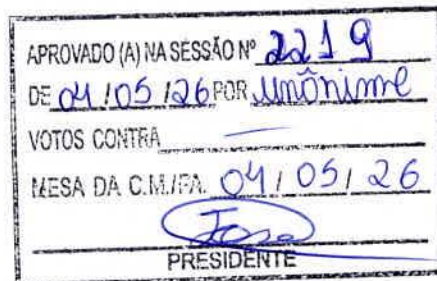 APROVADO (A) NA SESSÃO Nº 2219
DE 04/05/26 POR unônime
VOTOS CONTRA —
MESA DA C.M./PA. 04/05/26
PRESIDENTE